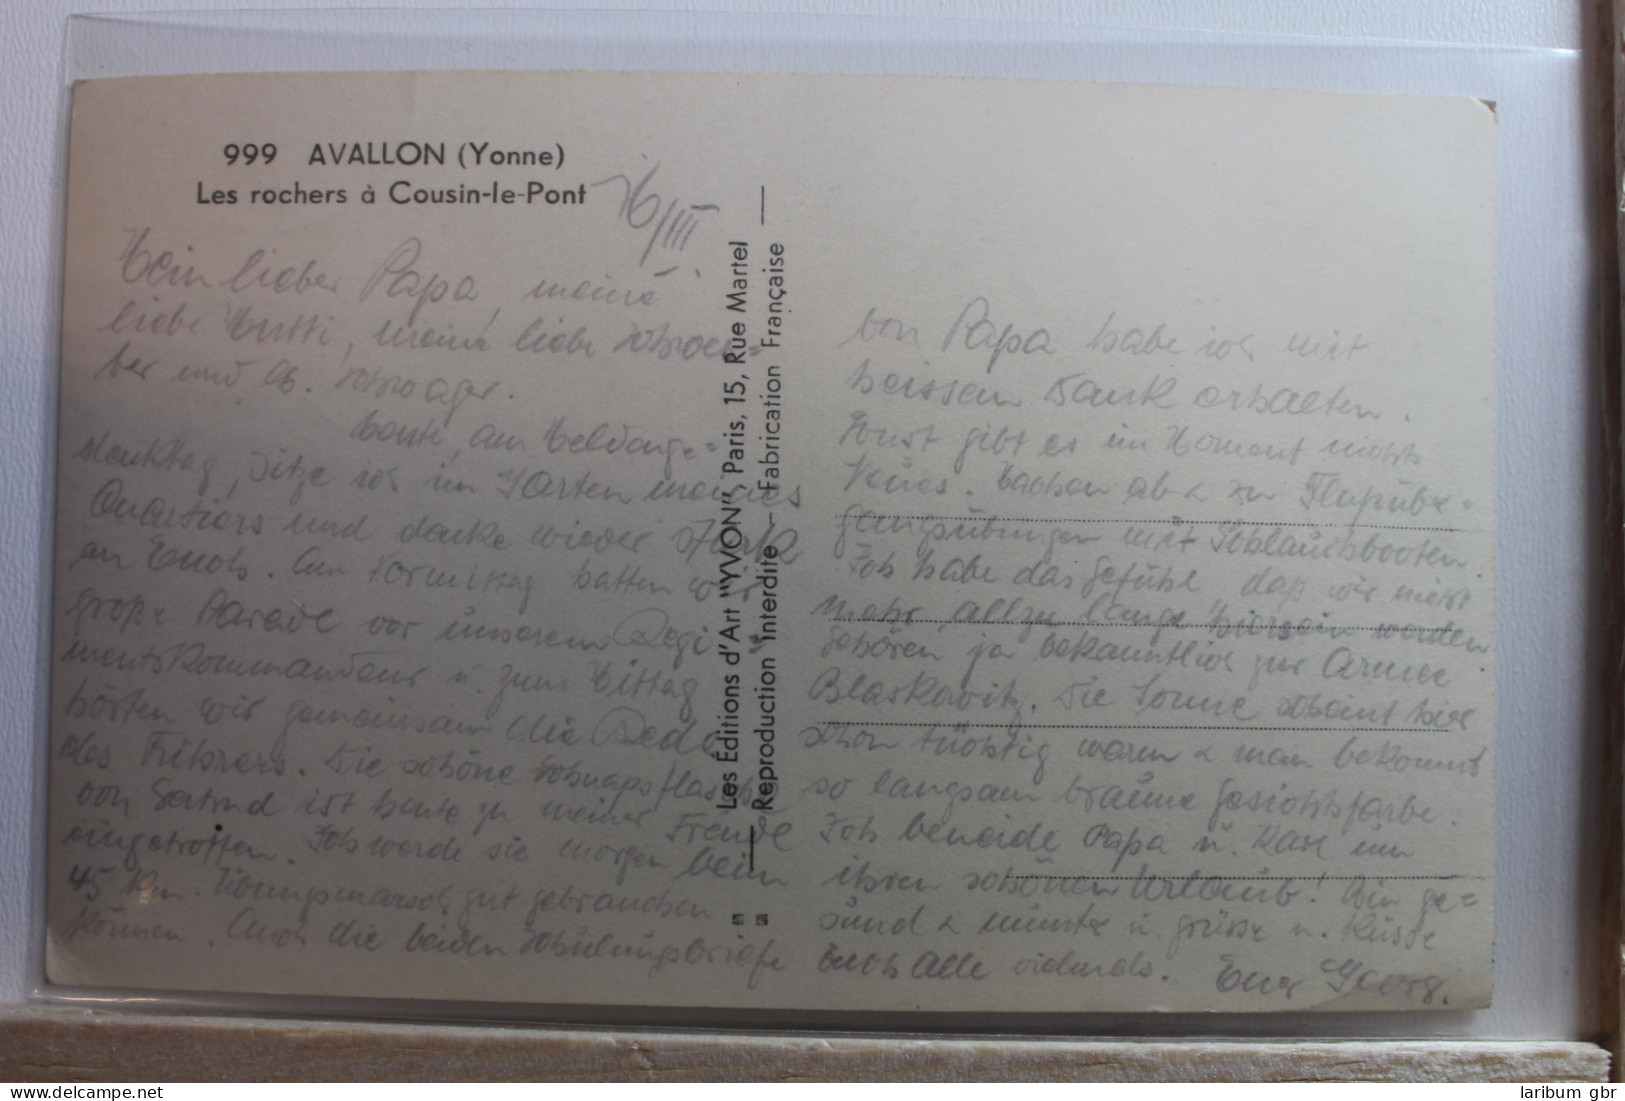 999 AVALLON (Yonne)
Les rochers à Cousin-le-Pont
16/III
Mein lieber Papa, meine
liebe Mutti, meine liebe Schwes=
ter und lb. Schwager.
Heute, am Heldenge=
denktag, sitze ich im Garten meines
Quartiers und denke wieder stark
an Euch. Am Vormittag hatten wir
große Parade vor unserem Regi=
mentskommandeur u. zum Mittag
hörten wir gemeinsam die Rede
des Führers. Die schöne Schnapsflasche
von Gertrud ist heute zu meiner Freude
eingetroffen. Ich werde sie morgen beim
45 Km. Übungsmarsch gut gebrauchen
können. Auch die beiden Schulungsbriefe
Les Éditions d'Art "YVON", Paris, 15, Rue Martel
Reproduction Interdite - Fabrication Française
von Papa habe ich mit
heissem Dank erhalten.
Sonst gibt es im Moment nichts
Neues. Machen ab & zu Flußüber=
gangsübungen mit Schlauchbooten.
Ich habe das Gefühl, daß wir nicht
mehr allzu lange hiersein werden.
Gehören ja bekanntlich zur Armee
Blaskowitz. Die Sonne scheint hier
schon tüchtig warm & man bekommt
so langsam braune Gesichtsfarbe.
Ich beneide Papa u. Karl um
ihren schönen Urlaub! Bin ge=
sund & munter u. grüsse u. küsse
Euch Alle vielmals. Euer Georg.
laribum gbr